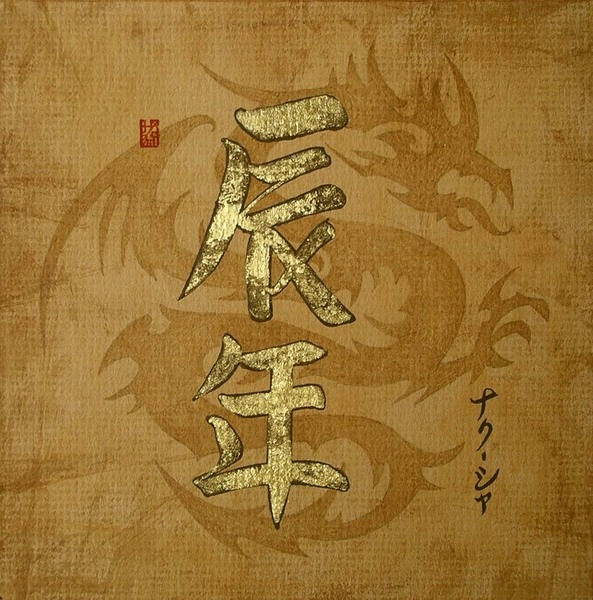 辰年
ナターシャ